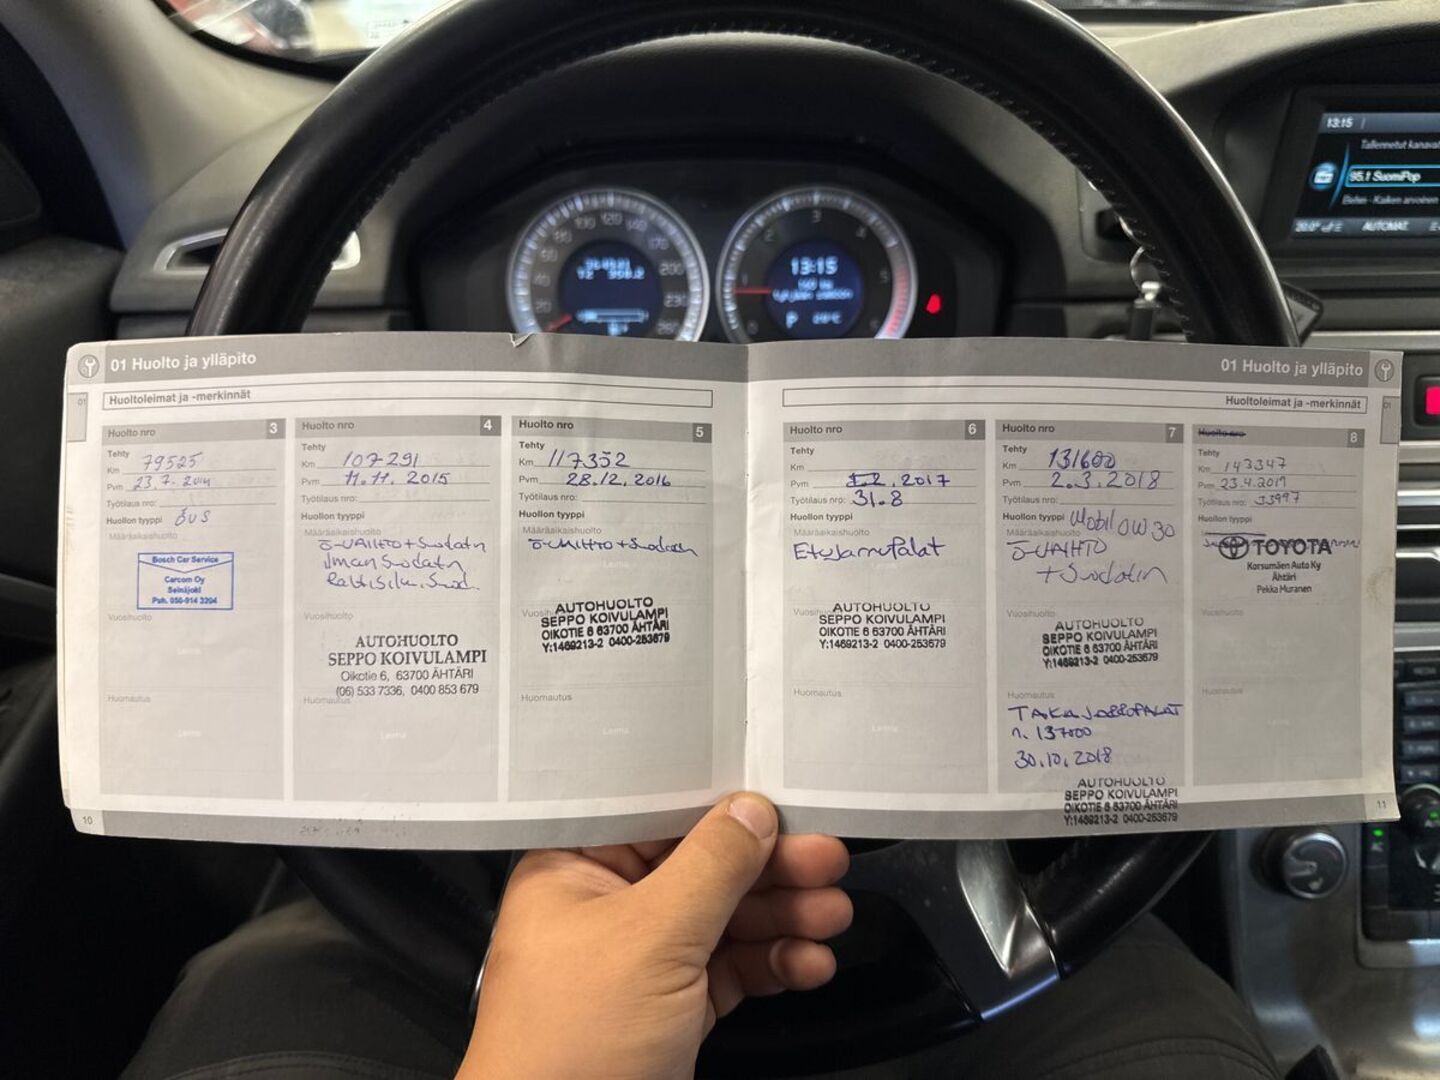 13:15
Tallennetut kanavat
95.1 SuomiPop
AUTOMAT.
13:15
P
01 Huolto ja ylläpito
Huoltoleimat ja -merkinnät
01
Huolto nro 3
Tehty
Km 79525
Pvm 23.7.2014
Työtilaus nro:
Huollon tyyppi
Määräaikaishuolto
Bosch Car Service
Carcom Oy
Seinäjoki
Puh. 050-914 3204
Vuosihuolto
Leima
Huomautus
Leima
10
Huolto nro 4
Tehty
Km 107291
Pvm 11.11.2015
Työtilaus nro:
Huollon tyyppi
Määräaikaishuolto
Ö-VAIHTO + Suodatin
ilman Suodatin
Raitisilm. Suod.
Vuosihuolto
AUTOHUOLTO
SEPPO KOIVULAMPI
Oikotie 6, 63700 ÄHTÄRI
(06) 533 7336, 0400 853 679
Huomautus
Leima
Huolto nro 5
Tehty
Km 117352
Pvm 28.12.2016
Työtilaus nro:
Huollon tyyppi
Määräaikaishuolto
Ö-VAIHTO + Suodatin
Leima
Vuosihuolto
AUTOHUOLTO
SEPPO KOIVULAMPI
OIKOTIE 6 63700 ÄHTÄRI
Y:1469213-2 0400-253679
Huomautus
Leima
01 Huolto ja ylläpito
Huoltoleimat ja -merkinnät
01
Huolto nro 6
Tehty
Km
Pvm 2017
Työtilaus nro: 31.8
Huollon tyyppi
Määräaikaishuolto
Etujarrupalat
Vuosihuolto
AUTOHUOLTO
SEPPO KOIVULAMPI
OIKOTIE 6 63700 ÄHTÄRI
Y:1469213-2 0400-253679
Huomautus
Leima
Huolto nro 7
Tehty
Km 131600
Pvm 2.3.2018
Työtilaus nro:
Huollon tyyppi Mobil 0W30
Määräaikaishuolto
Ö-VAIHTO
+ Suodatin
Vuosihuolto
AUTOHUOLTO
SEPPO KOIVULAMPI
OIKOTIE 6 63700 ÄHTÄRI
Y:1469213-2 0400-253679
Huomautus
TAKAJARRUPALAT
n. 137000
30.10.2018
AUTOHUOLTO
SEPPO KOIVULAMPI
OIKOTIE 6 63700 ÄHTÄRI
Y:1469213-2 0400-253679
Huolto nro 8
Tehty
Km 143347
Pvm 23.4.2019
Työtilaus nro: 33997
Huollon tyyppi
TOYOTA
Korsumäen Auto Ky
Ähtäri
Pekka Muranen
Vuosihuolto
Leima
Huomautus
Leima
11